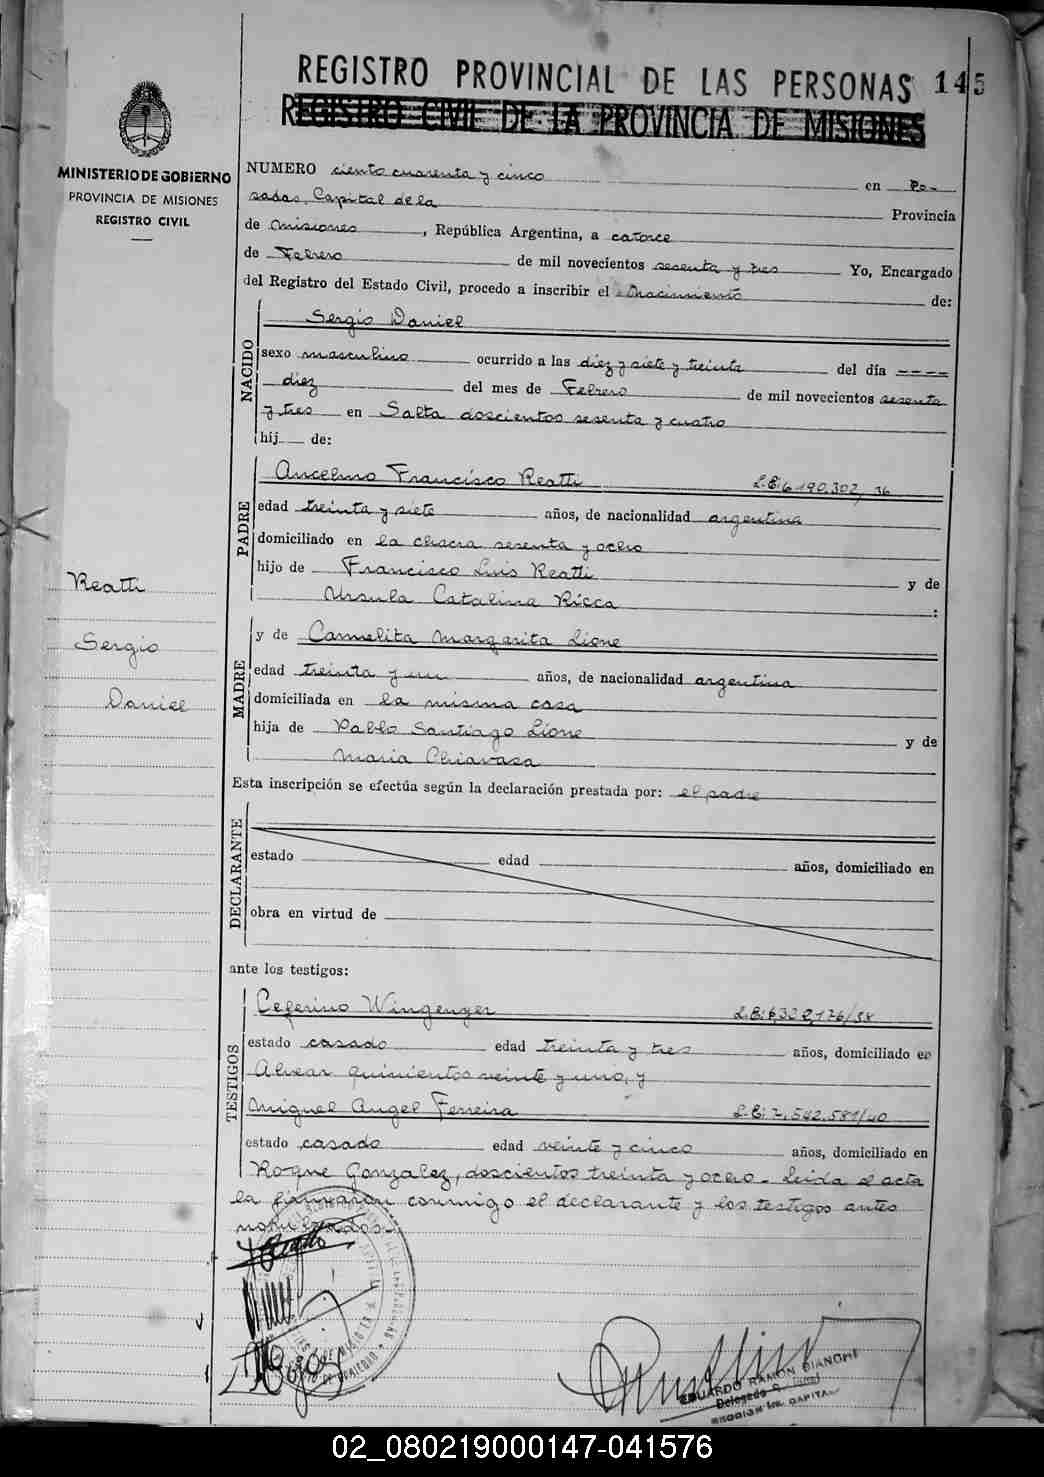 REGISTRO PROVINCIAL DE LAS PERSONAS 145
REGISTRO CIVIL DE LA PROVINCIA DE MISIONES
MINISTERIO DE GOBIERNO
PROVINCIA DE MISIONES
REGISTRO CIVIL
NUMERO ciento cuarenta y cinco en Po-
sadas, Capital de la Provincia
de Misiones, República Argentina, a catorce
de Febrero de mil novecientos sesenta y tres Yo, Encargado
del Registro del Estado Civil, procedo a inscribir el nacimiento de:
NACIDO
Sergio Daniel
sexo masculino ocurrido a las diez y siete y treinta del día ----
diez del mes de Febrero de mil novecientos sesenta
y tres en Salta doscientos sesenta y cuatro
hij de:
PADRE
Ancelmo Francisco Reatti L.E. 6.190.302, 36
edad treinta y siete años, de nacionalidad argentina
domiciliado en la chacra sesenta y ocho
hijo de Francisco Luis Reatti y de
Ursula Catalina Ricca :
MADRE
y de Carmelita Margarita Lione
edad treinta y un años, de nacionalidad argentina
domiciliada en la misma casa
hija de Pablo Santiago Lione y de
Maria Chiavasa
Reatti
Sergio
Daniel
Esta inscripción se efectúa según la declaración prestada por: el padre
DECLARANTE
estado edad años, domiciliado en
obra en virtud de
ante los testigos:
TESTIGOS
Ceferino Wingenger
estado casado edad treinta y tres años, domiciliado en
Alvear quinientos veinte y uno, y
Miguel Angel Ferreira L.E. 7.542.581/40
estado casado edad veinte y cinco años, domiciliado en
Roque Gonzalez, doscientos treinta y ocho. Leida el acta
la firmaron conmigo el declarante y los testigos antes
nombrados.
EDUARDO RAMON BIANCHI
Delegado
02_080219000147-041576